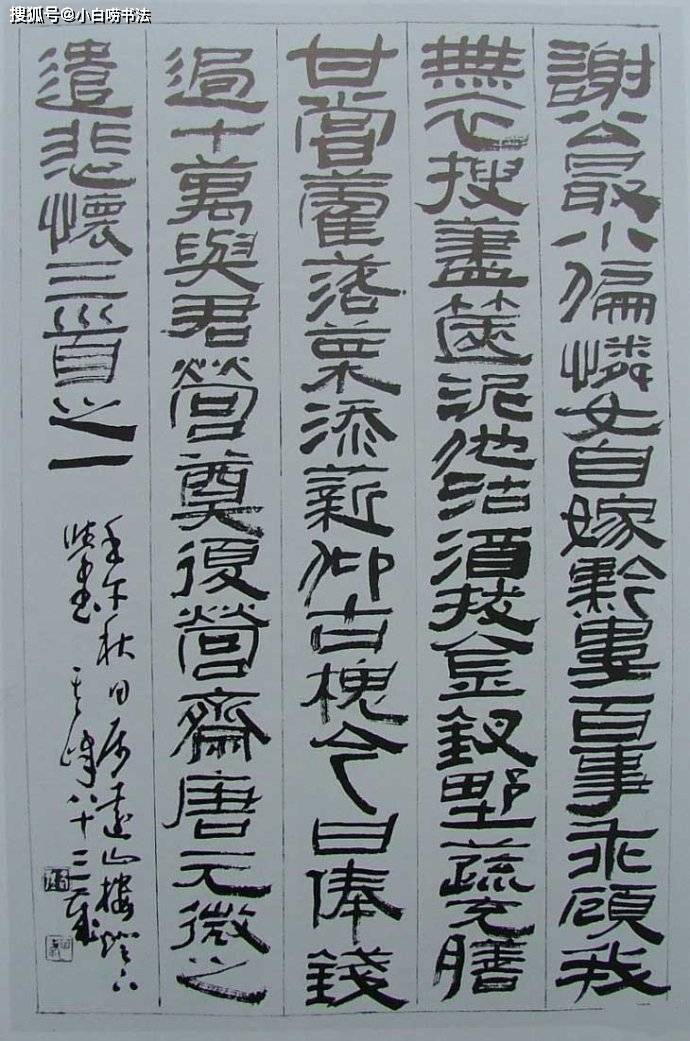 搜狐号@小白唠书法
謝公最小偏憐女自嫁黔婁百事乖顧我
無衣搜藎篋泥他沽酒拔金釵野蔬充膳
甘嘗藿落葉添薪仰古槐今日俸錢
過十萬與君營奠復營齋唐元微之
遣悲懷三首之一
秋日遠山樓燈下
其峰八十二歲